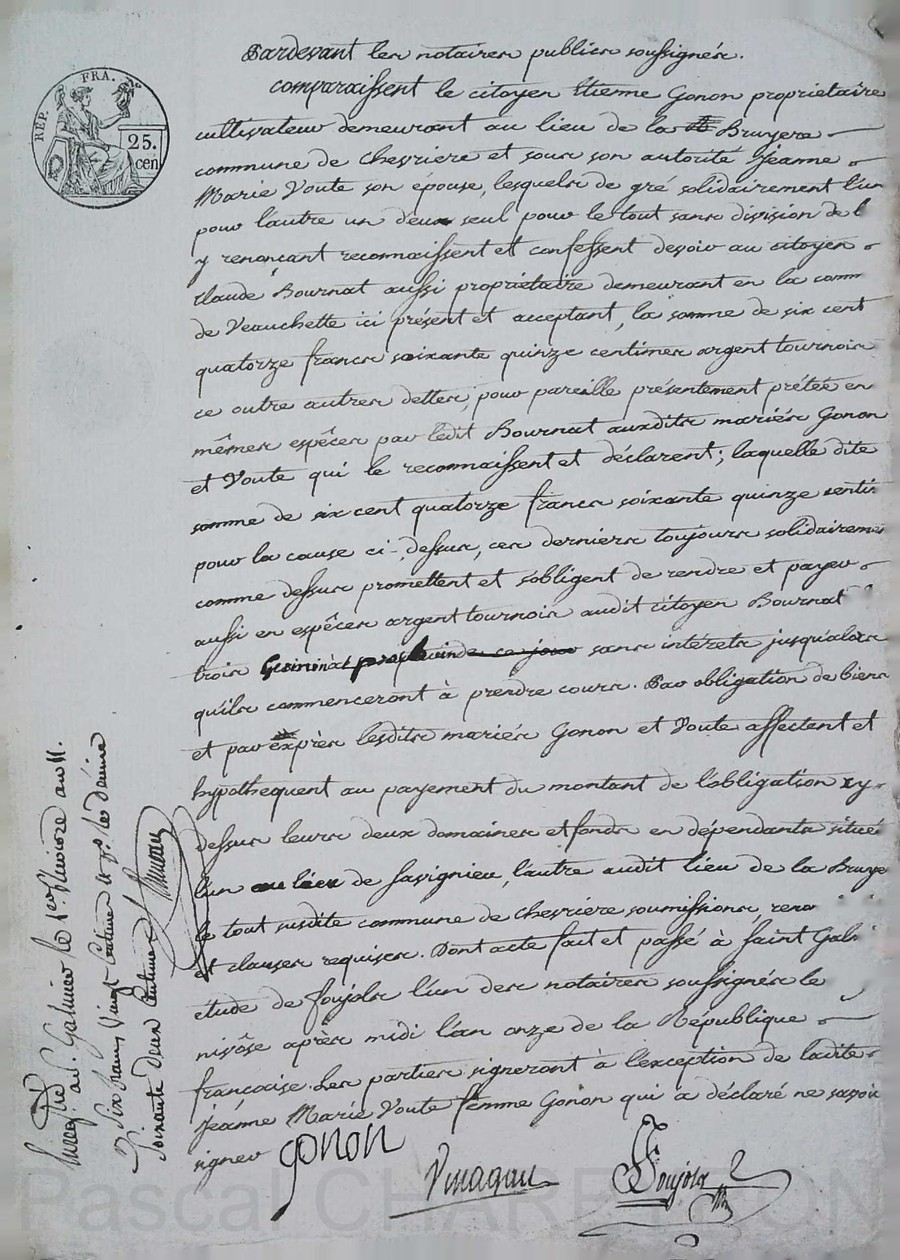 REP. FRA.
25.
cen
Pardevant les notaires publics soussignés.
comparaissent le citoyen Etienne Gonon propriétaire
cultivateur demeurant au lieu de la Bruyere
commune de Chevriere et sous son autorité Jeanne
Marie Voute son épouse, lesquels de gré solidairement l'un
pour l'autre un deux seul pour le tout sans division de
y renonçant reconnaissent et confessent devoir au citoyen
Claude Bournat aussi propriétaire demeurant en la comm
de Veauchette ici présent et acceptant, la somme de six cent
quatorze francs soixante quinze centimes argent tournois
ce outre autres dettes, pour pareille présentement prétée en
mêmes espêces par ledit Bournat auxdits mariés Gonon
et Voute qui le reconnaissent et déclarent; laquelle dite
somme de six cent quatorze francs soixante quinze centim
pour la cause ci-dessus, ces derniers toujours solidaireme
comme dessus promettent et s'obligent de rendre et payer
aussi en espêces argent tournois audit citoyen Bournat
trois ce jour sans intérêts jusqu'alors
qu'ils commenceront à prendre cours. Par obligation de biens
et par exprès lesdits mariés Gonon et Voute affectent et
hypothequent au payement du montant de l'obligation cy
dessus leurs deux domaines et fonds en dépendants situés
l'un au lieu de Savignieu, l'autre audit lieu de la Bruye
le tout susdite commune de Chevrière soumissions, reno
et clauses requises. Dont acte fait et passé à Saint Gal
étude de Soujols l'un des notaires soussignés le
nivôse après midi l'an onze de la République
française. Les parties signeront à l'exception de ladite
Jeanne Marie Voute femme Gonon qui a déclaré ne savoir
signer gonon
Soujols
Enregtré à St. Galmier le 1er pluviôse an 11.
six francs vingt centimes
soixante deux centimes
Pascal CHARETTON